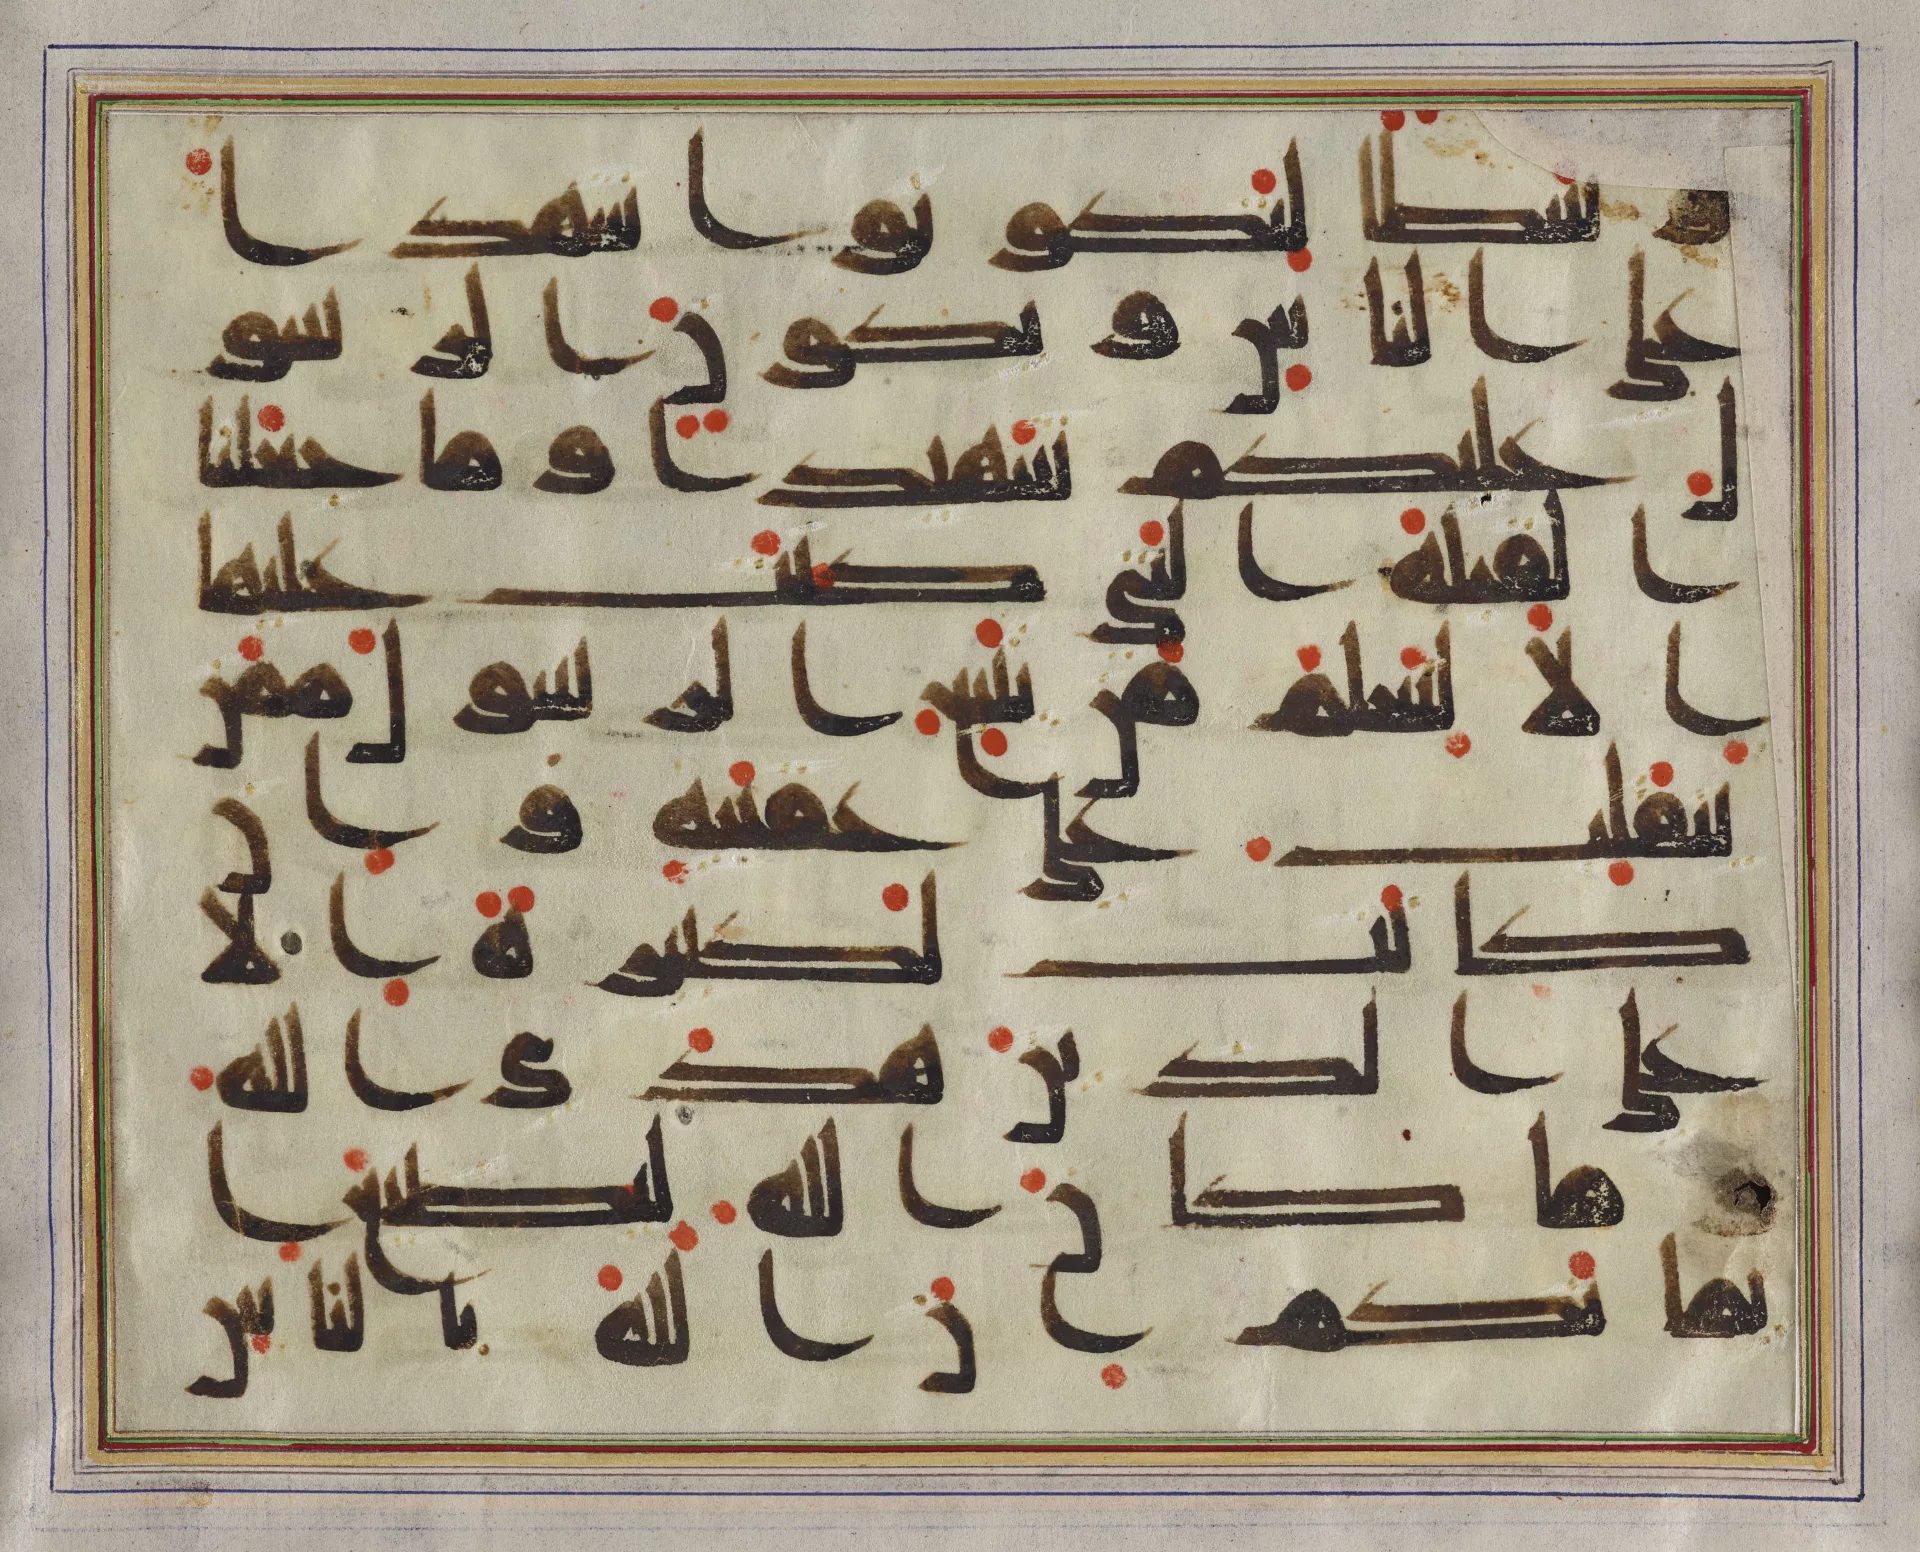 وسطا لتكونوا شهدا
على الناس ويكون الرسو
ل عليكم شهيدا وما جعلنا
القبلة التي كنت عليها
الا لنعلم من يتبع الرسول ممن
ينقلب على عقبيه وان
كانت لكبيرة الا
على الذين هدى الله
ما كان الله ليضيع ا
يمانكم ان الله بالناس